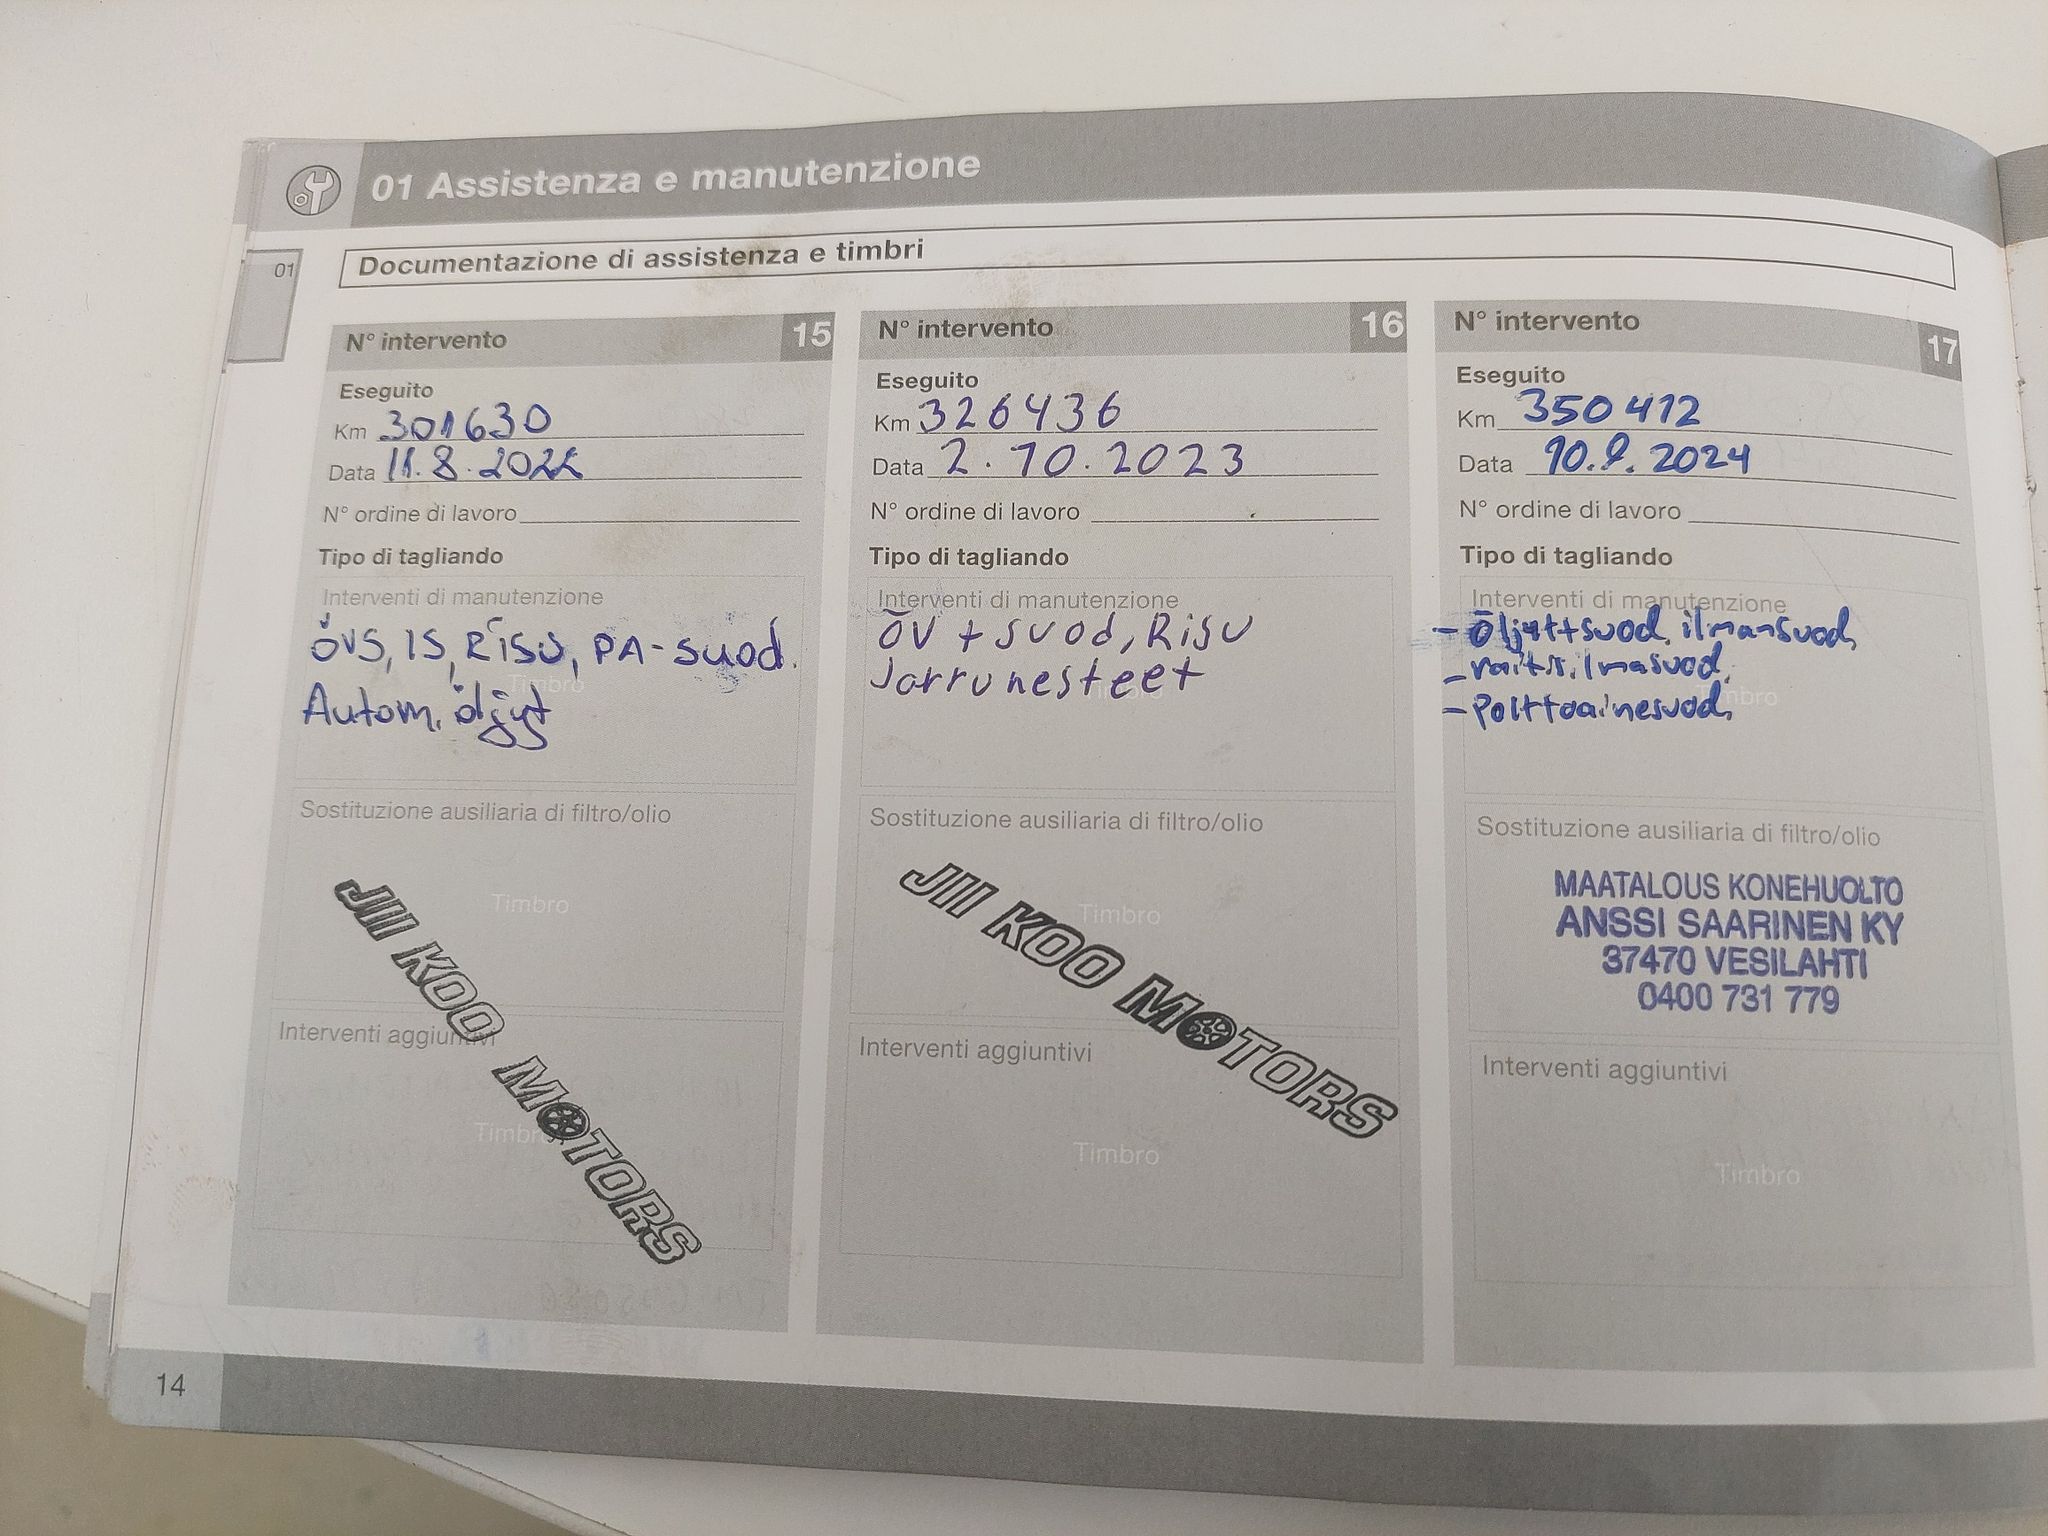 01 Assistenza e manutenzione
01
Documentazione di assistenza e timbri
N° intervento 15
Eseguito
Km 301630
Data 11.8.2022
N° ordine di lavoro
Tipo di tagliando
Interventi di manutenzione
ÖVS, IS, RISU, PA-suod.
Timbro
Autom. öljyt
Sostituzione ausiliaria di filtro/olio
Timbro
JII KOO MOTORS
Interventi aggiuntivi
Timbro
N° intervento 16
Eseguito
Km 326436
Data 2.10.2023
N° ordine di lavoro
Tipo di tagliando
Interventi di manutenzione
ÖV + suod, RISU
Jarrunesteet
Sostituzione ausiliaria di filtro/olio
Timbro
JII KOO MOTORS
Interventi aggiuntivi
Timbro
N° intervento 17
Eseguito
Km 350412
Data 2024
N° ordine di lavoro
Tipo di tagliando
Interventi di manutenzione
- Öljyt+suod, ilmansuod,
- raitis.ilmasuod,
- Polttoainesuod,
Timbro
Sostituzione ausiliaria di filtro/olio
MAATALOUS KONEHUOLTO
ANSSI SAARINEN KY
37470 VESILAHTI
0400 731 779
Interventi aggiuntivi
Timbro
14